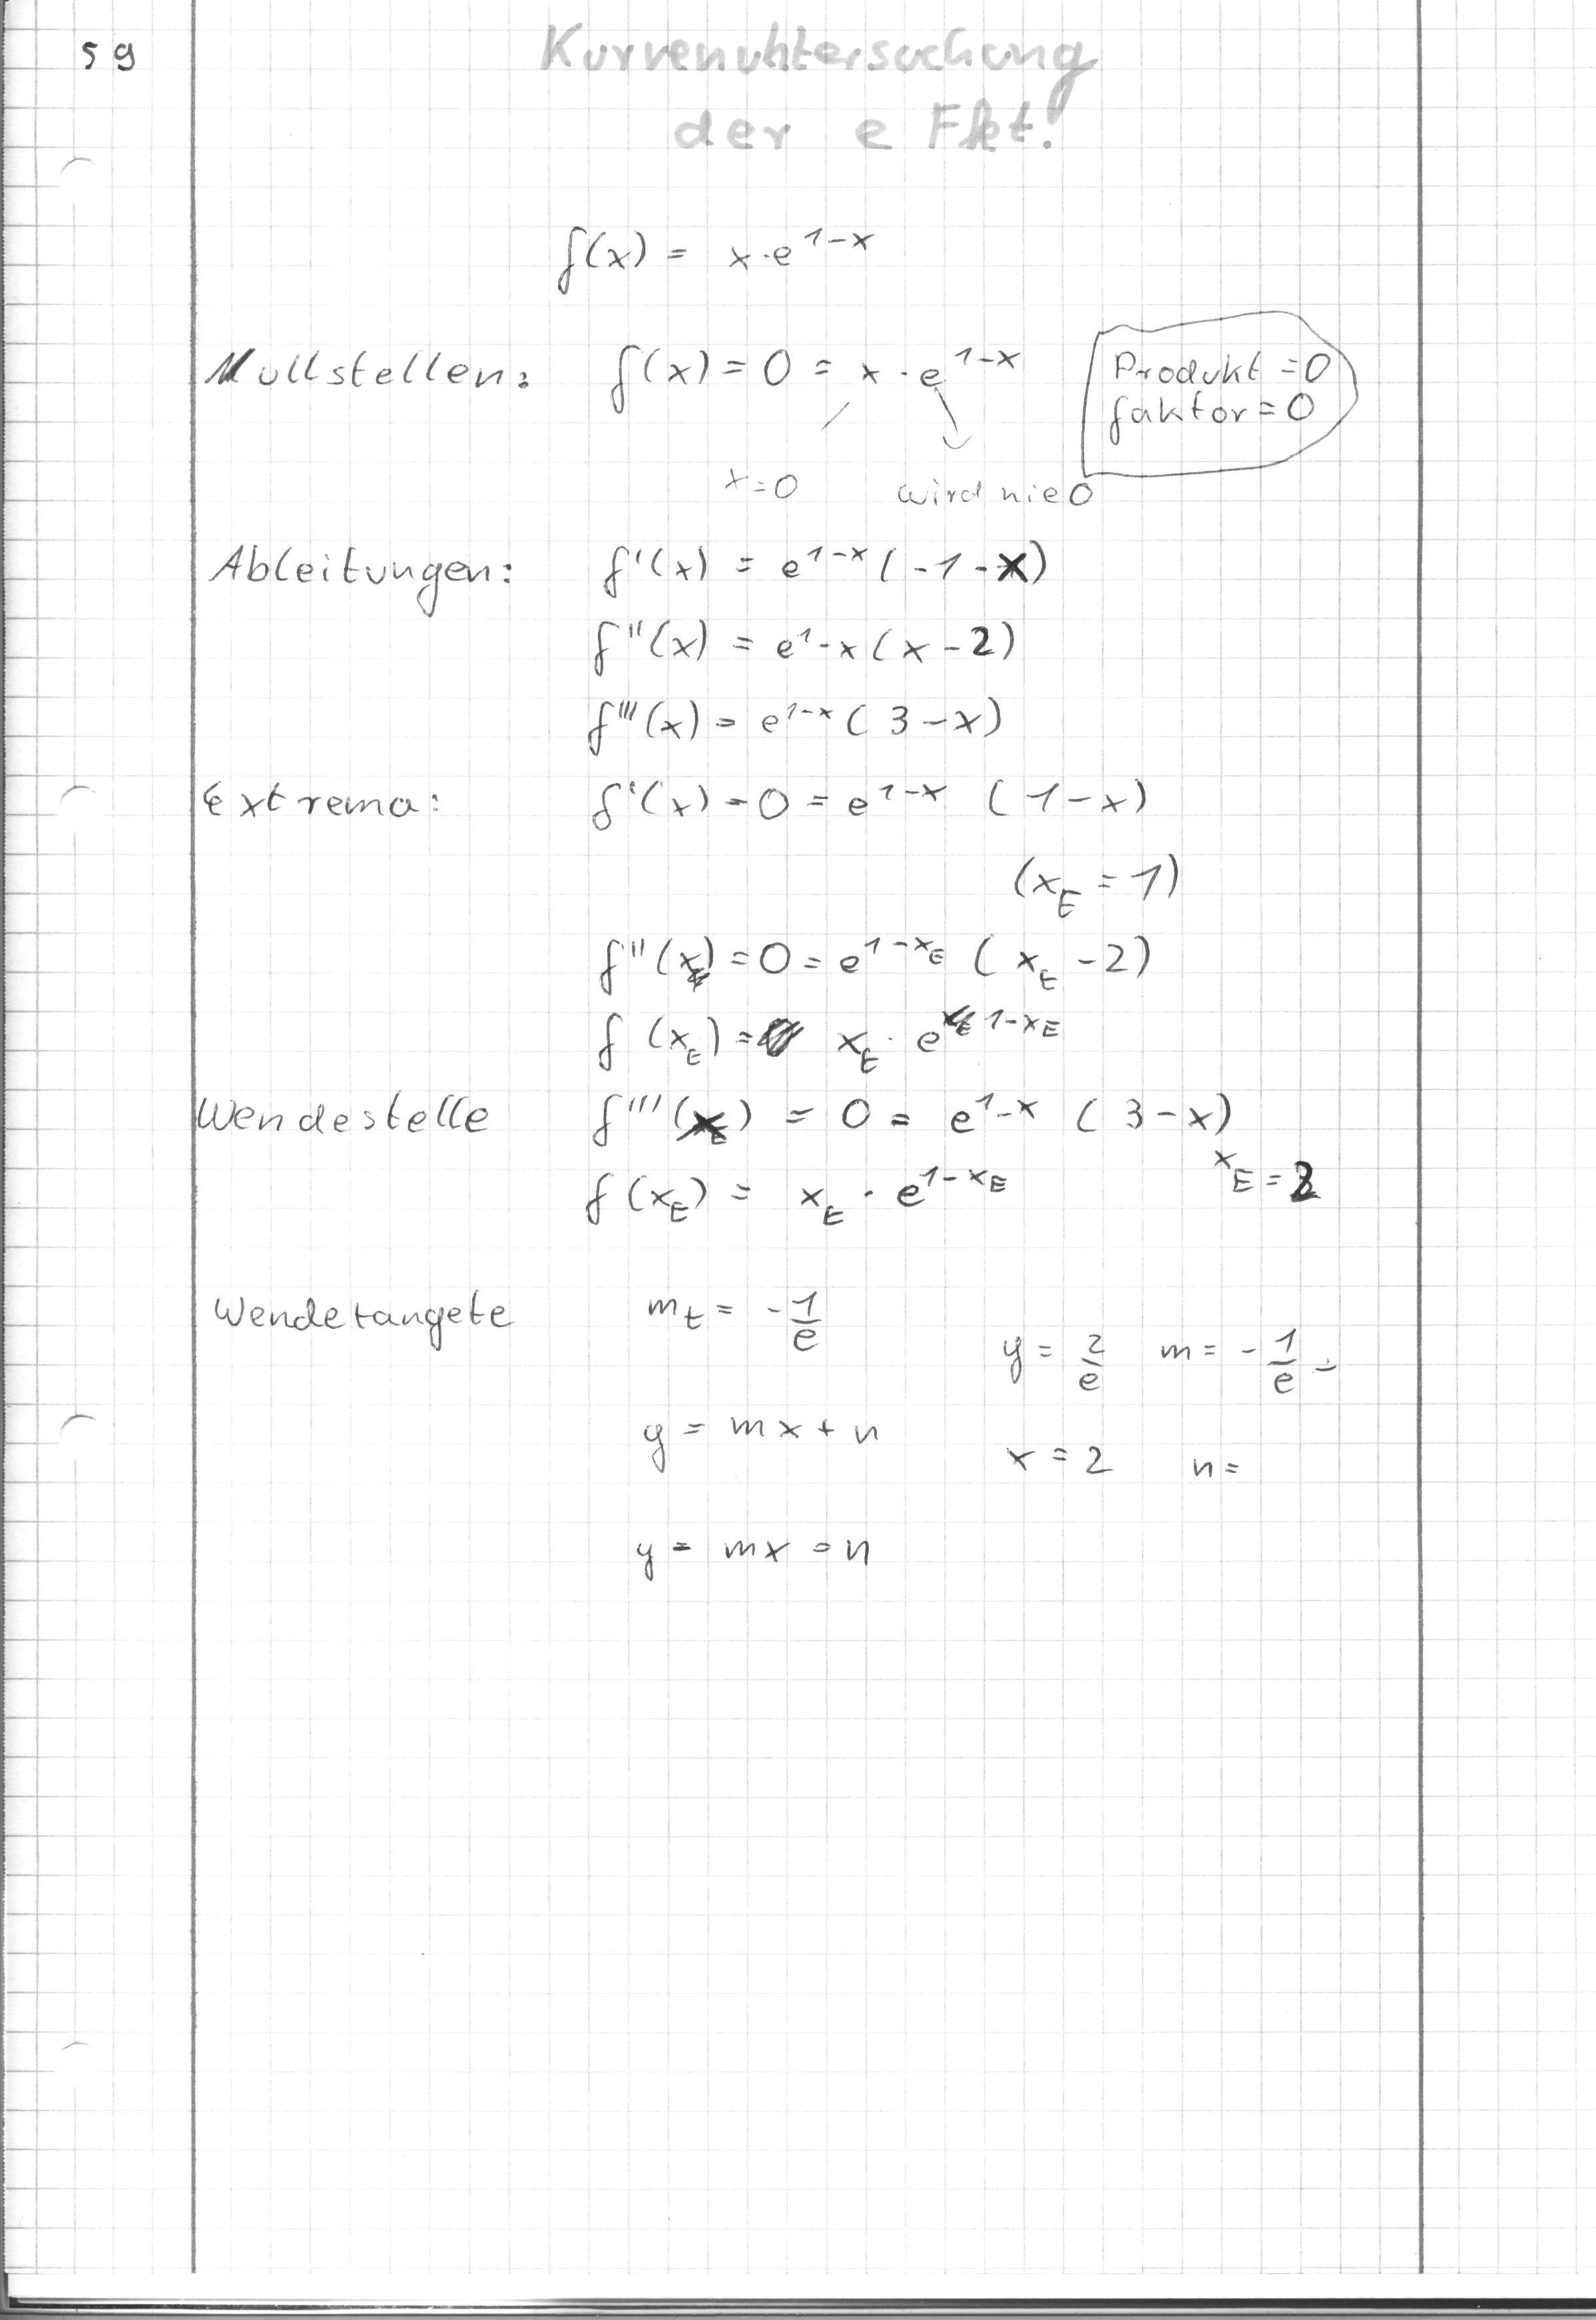 59
Kurvenuntersuchung
der e Fkt.
f(x) = x·e^1-x
Nullstellen: f(x) = 0 = x · e^1-x
Produkt =0
faktor = 0
x=0 wird nie 0
Ableitungen: f'(x) = e^1-x (-1-x)
f''(x) = e^1-x (x-2)
f'''(x) = e^1-x (3-x)
Extrema: f'(x) = 0 = e^1-x (1-x)
(x_E = 1)
f''(x_E) = 0 = e^1-x_E (x_E -2)
f (x_E) = x_E · e^1-x_E
Wendestelle f'''(x_E) = 0 = e^1-x (3-x)
x_E = 2
f(x_E) = x_E · e^1-x_E
Wendetangete m_t = -1/e
y = 2/e m = -1/e -
y = mx + n
x = 2 n =
y = mx = n